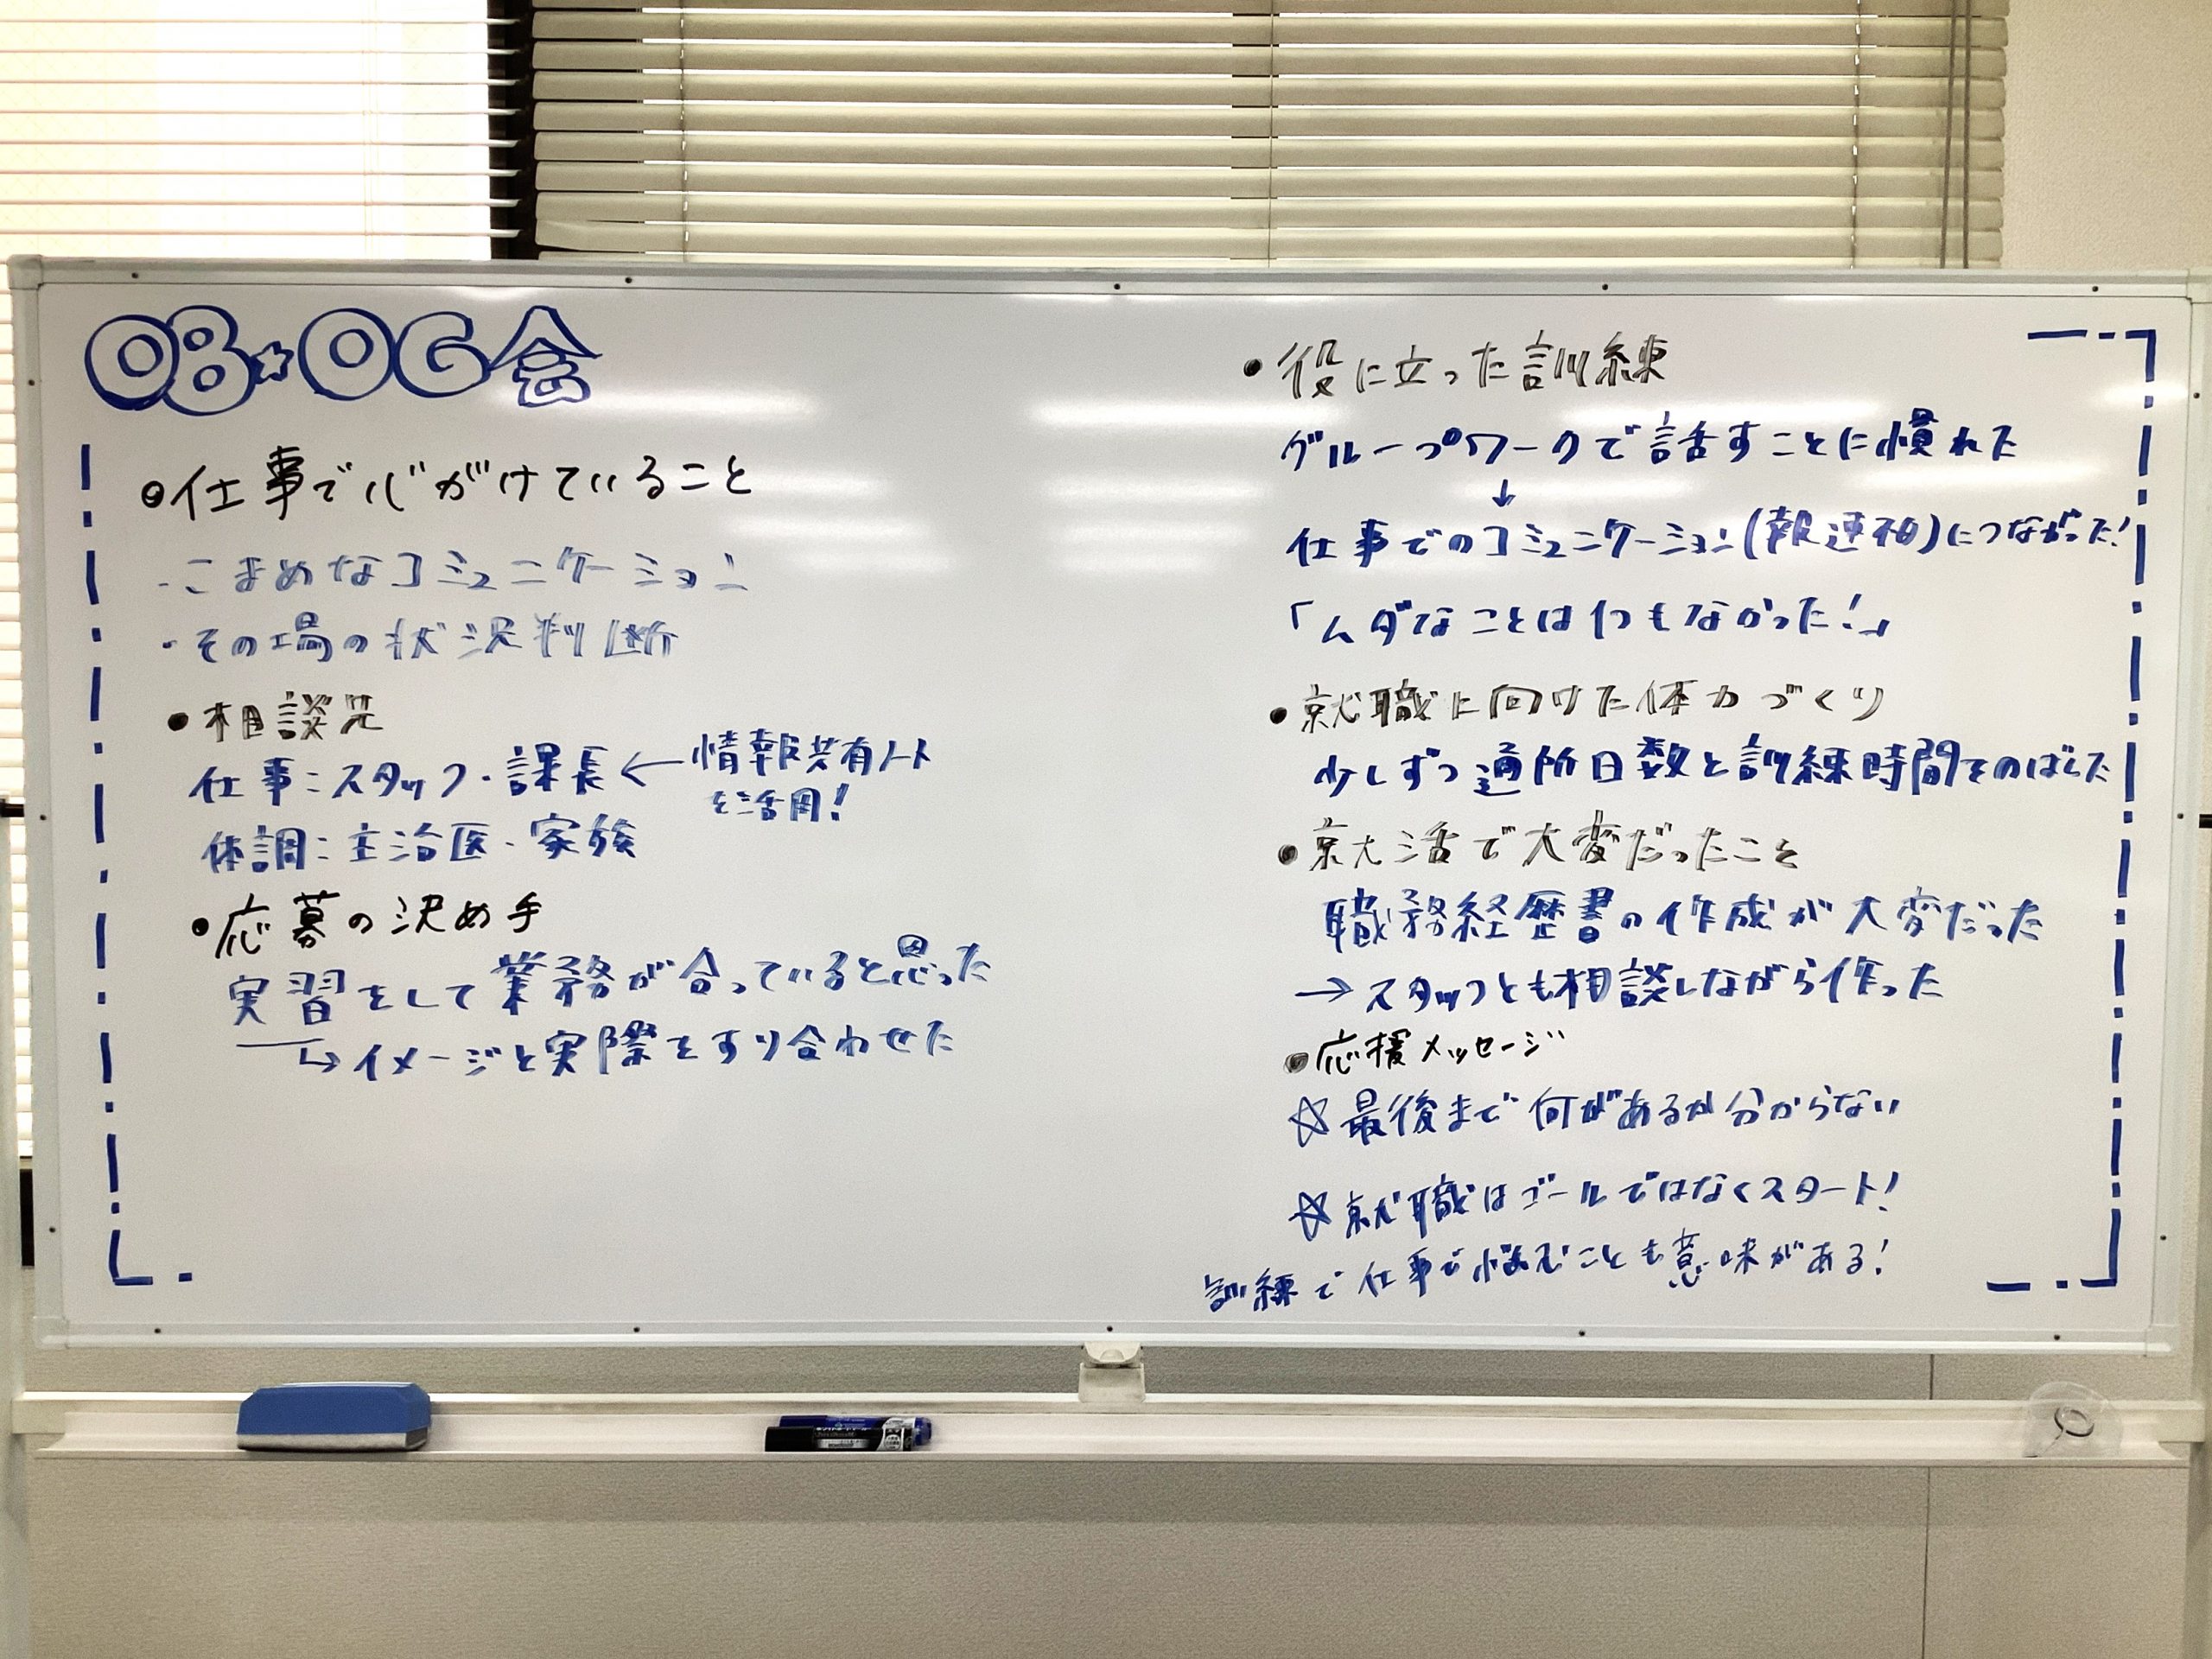 OB☆OG会
●仕事で心がけていること
・こまめなコミュニケーション
・その場の状況判断
●相談先
仕事：スタッフ・課長←情報共有ノート
を活用！
体調：主治医・家族
●応募の決め手
実習をして業務が合っていると思った
↳イメージと実際をすり合わせた
●役に立った訓練
グループワークで話すことに慣れた
↓
仕事でのコミュニケーション(報連相)につながった！
「ムダなことは1つもなかった！」
●就職に向けた体力づくり
少しずつ通所日数と訓練時間をのばした
●就活で大変だったこと
職務経歴書の作成が大変だった
→スタッフとも相談しながら作った
●応援メッセージ
☆最後まで何があるか分からない
☆就職はゴールではなくスタート！
訓練で仕事で悩むことも意味がある！